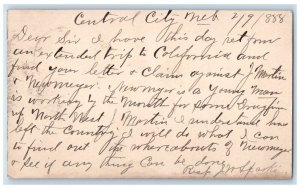 Central City Neb 2/9/1888
Dear Sir I have this day ret from
an extended trip to California and
find your letter & claim against J Martin
& Newmeyer. Newmeyer is a Young Man
is working by the Month for some Druggist
up North West J Martin I understand has
left the Country I will do what I can
to find out the whereabouts of Newmeyer
& see if any thing can be done
Resp